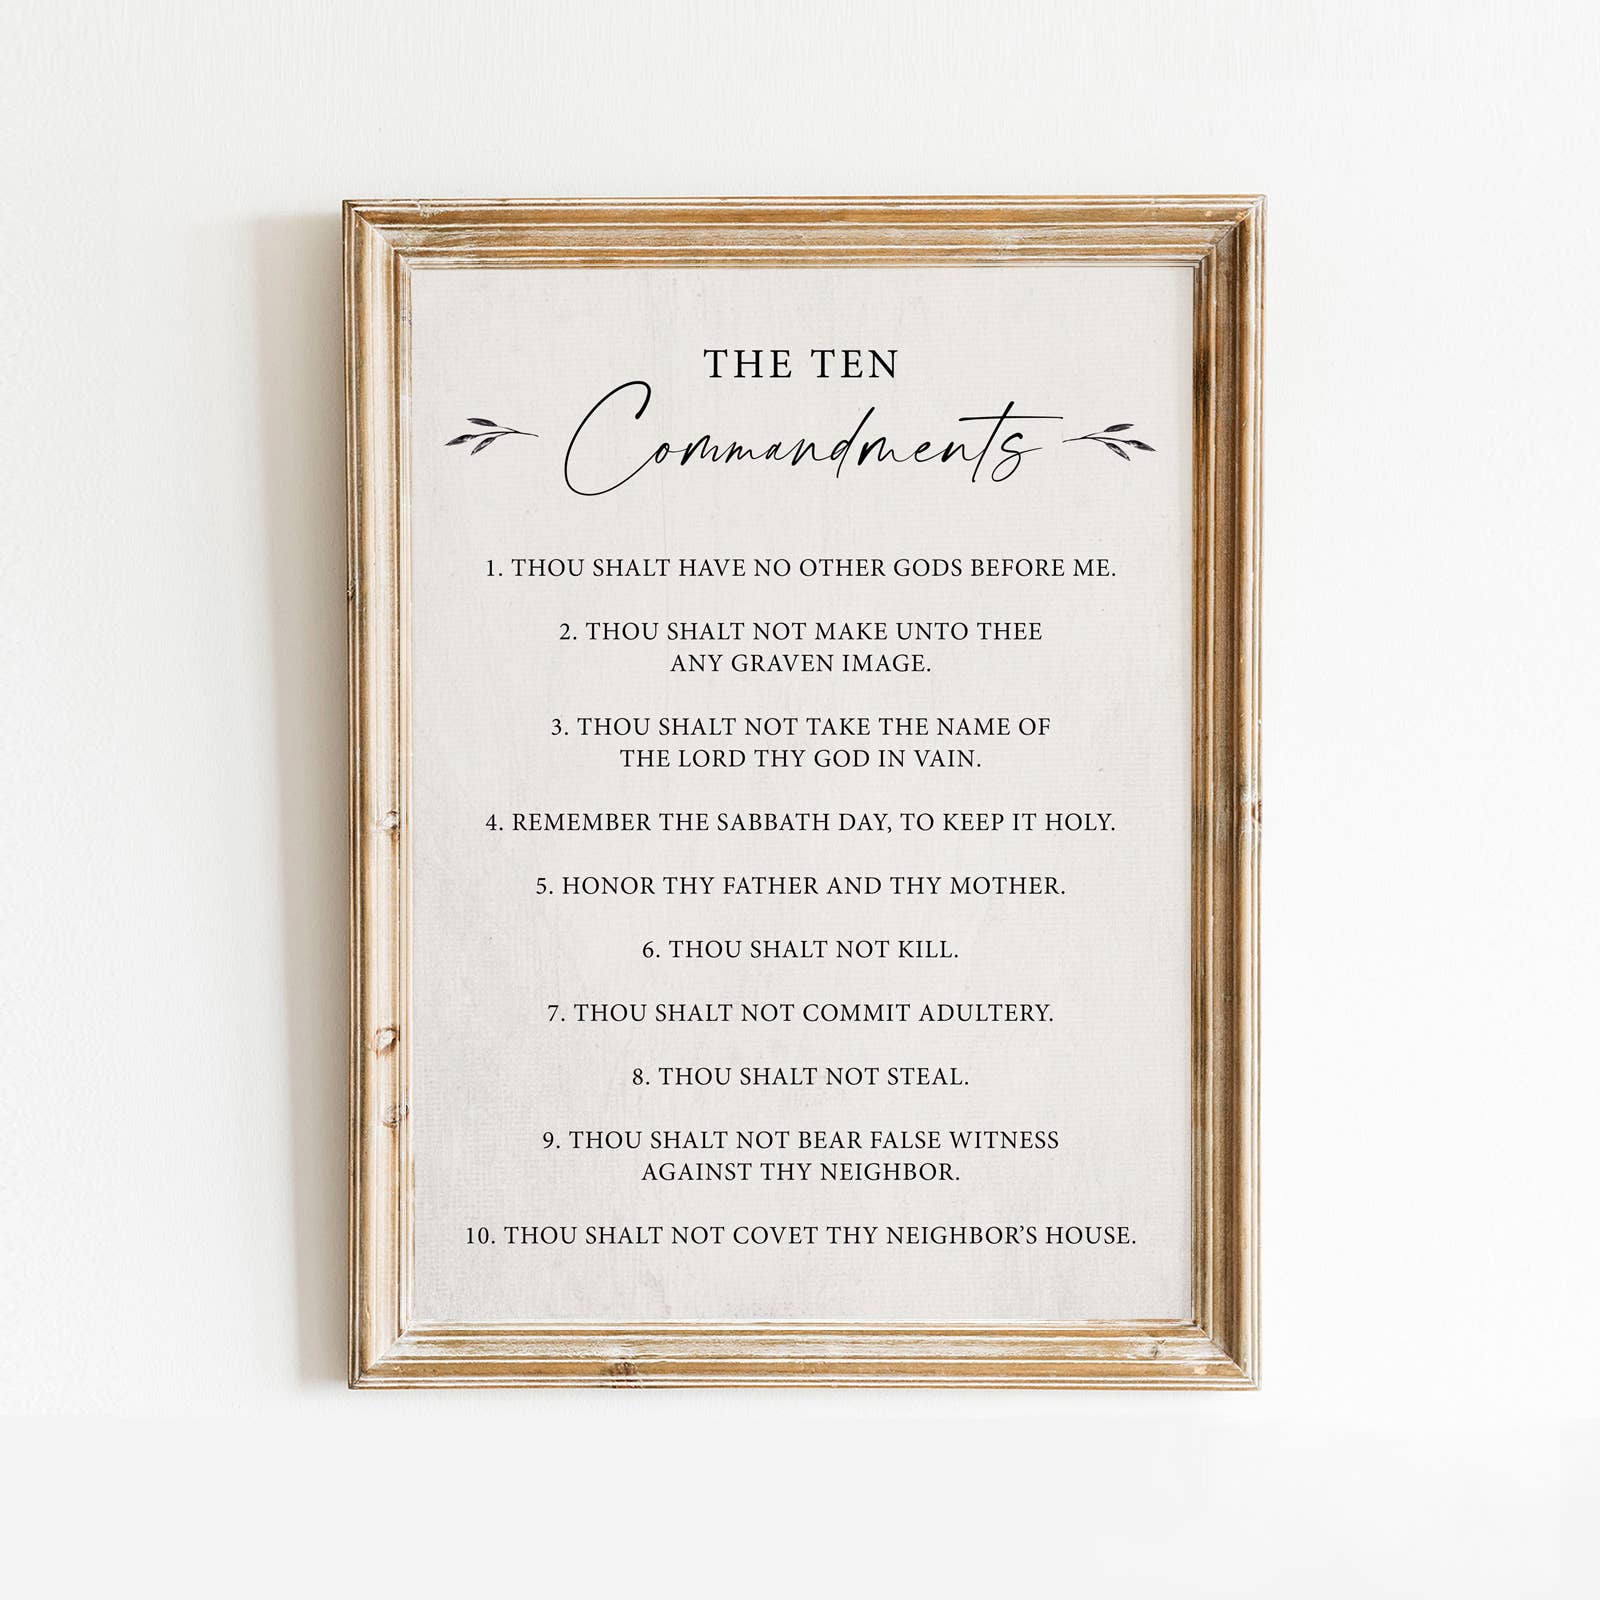 THE TEN
Commandments
1. THOU SHALT HAVE NO OTHER GODS BEFORE ME.
2. THOU SHALT NOT MAKE UNTO THEE
ANY GRAVEN IMAGE.
3. THOU SHALT NOT TAKE THE NAME OF
THE LORD THY GOD IN VAIN.
4. REMEMBER THE SABBATH DAY, TO KEEP IT HOLY.
5. HONOR THY FATHER AND THY MOTHER.
6. THOU SHALT NOT KILL.
7. THOU SHALT NOT COMMIT ADULTERY.
8. THOU SHALT NOT STEAL.
9. THOU SHALT NOT BEAR FALSE WITNESS
AGAINST THY NEIGHBOR.
10. THOU SHALT NOT COVET THY NEIGHBOR’S HOUSE.